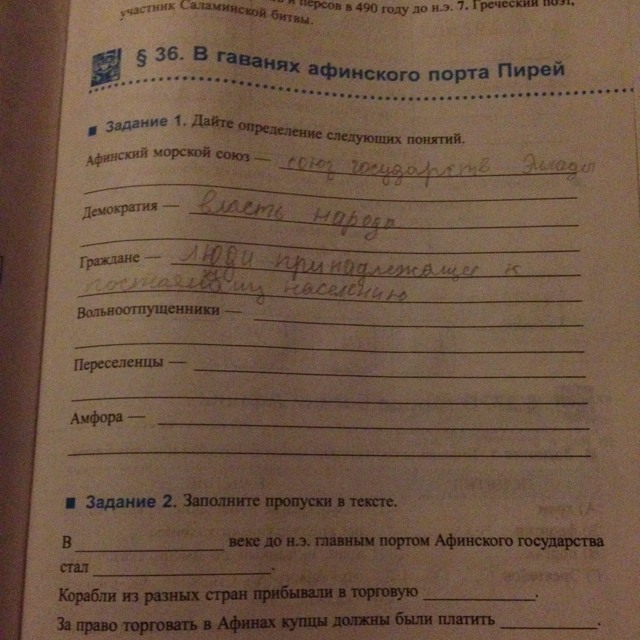 и персов в 490 году до н.э. 7. Греческий поэт,
участник Саламинской битвы.
§ 36. В гаванях афинского порта Пирей
Задание 1. Дайте определение следующих понятий.
Афинский морской союз — союз государств Эллады
Демократия — власть народа
Граждане — люди принадлежащие к
населению
Вольноотпущенники —
Переселенцы —
Амфора —
Задание 2. Заполните пропуски в тексте.
В веке до н.э. главным портом Афинского государства
стал .
Корабли из разных стран прибывали в торговую .
За право торговать в Афинах купцы должны были платить .